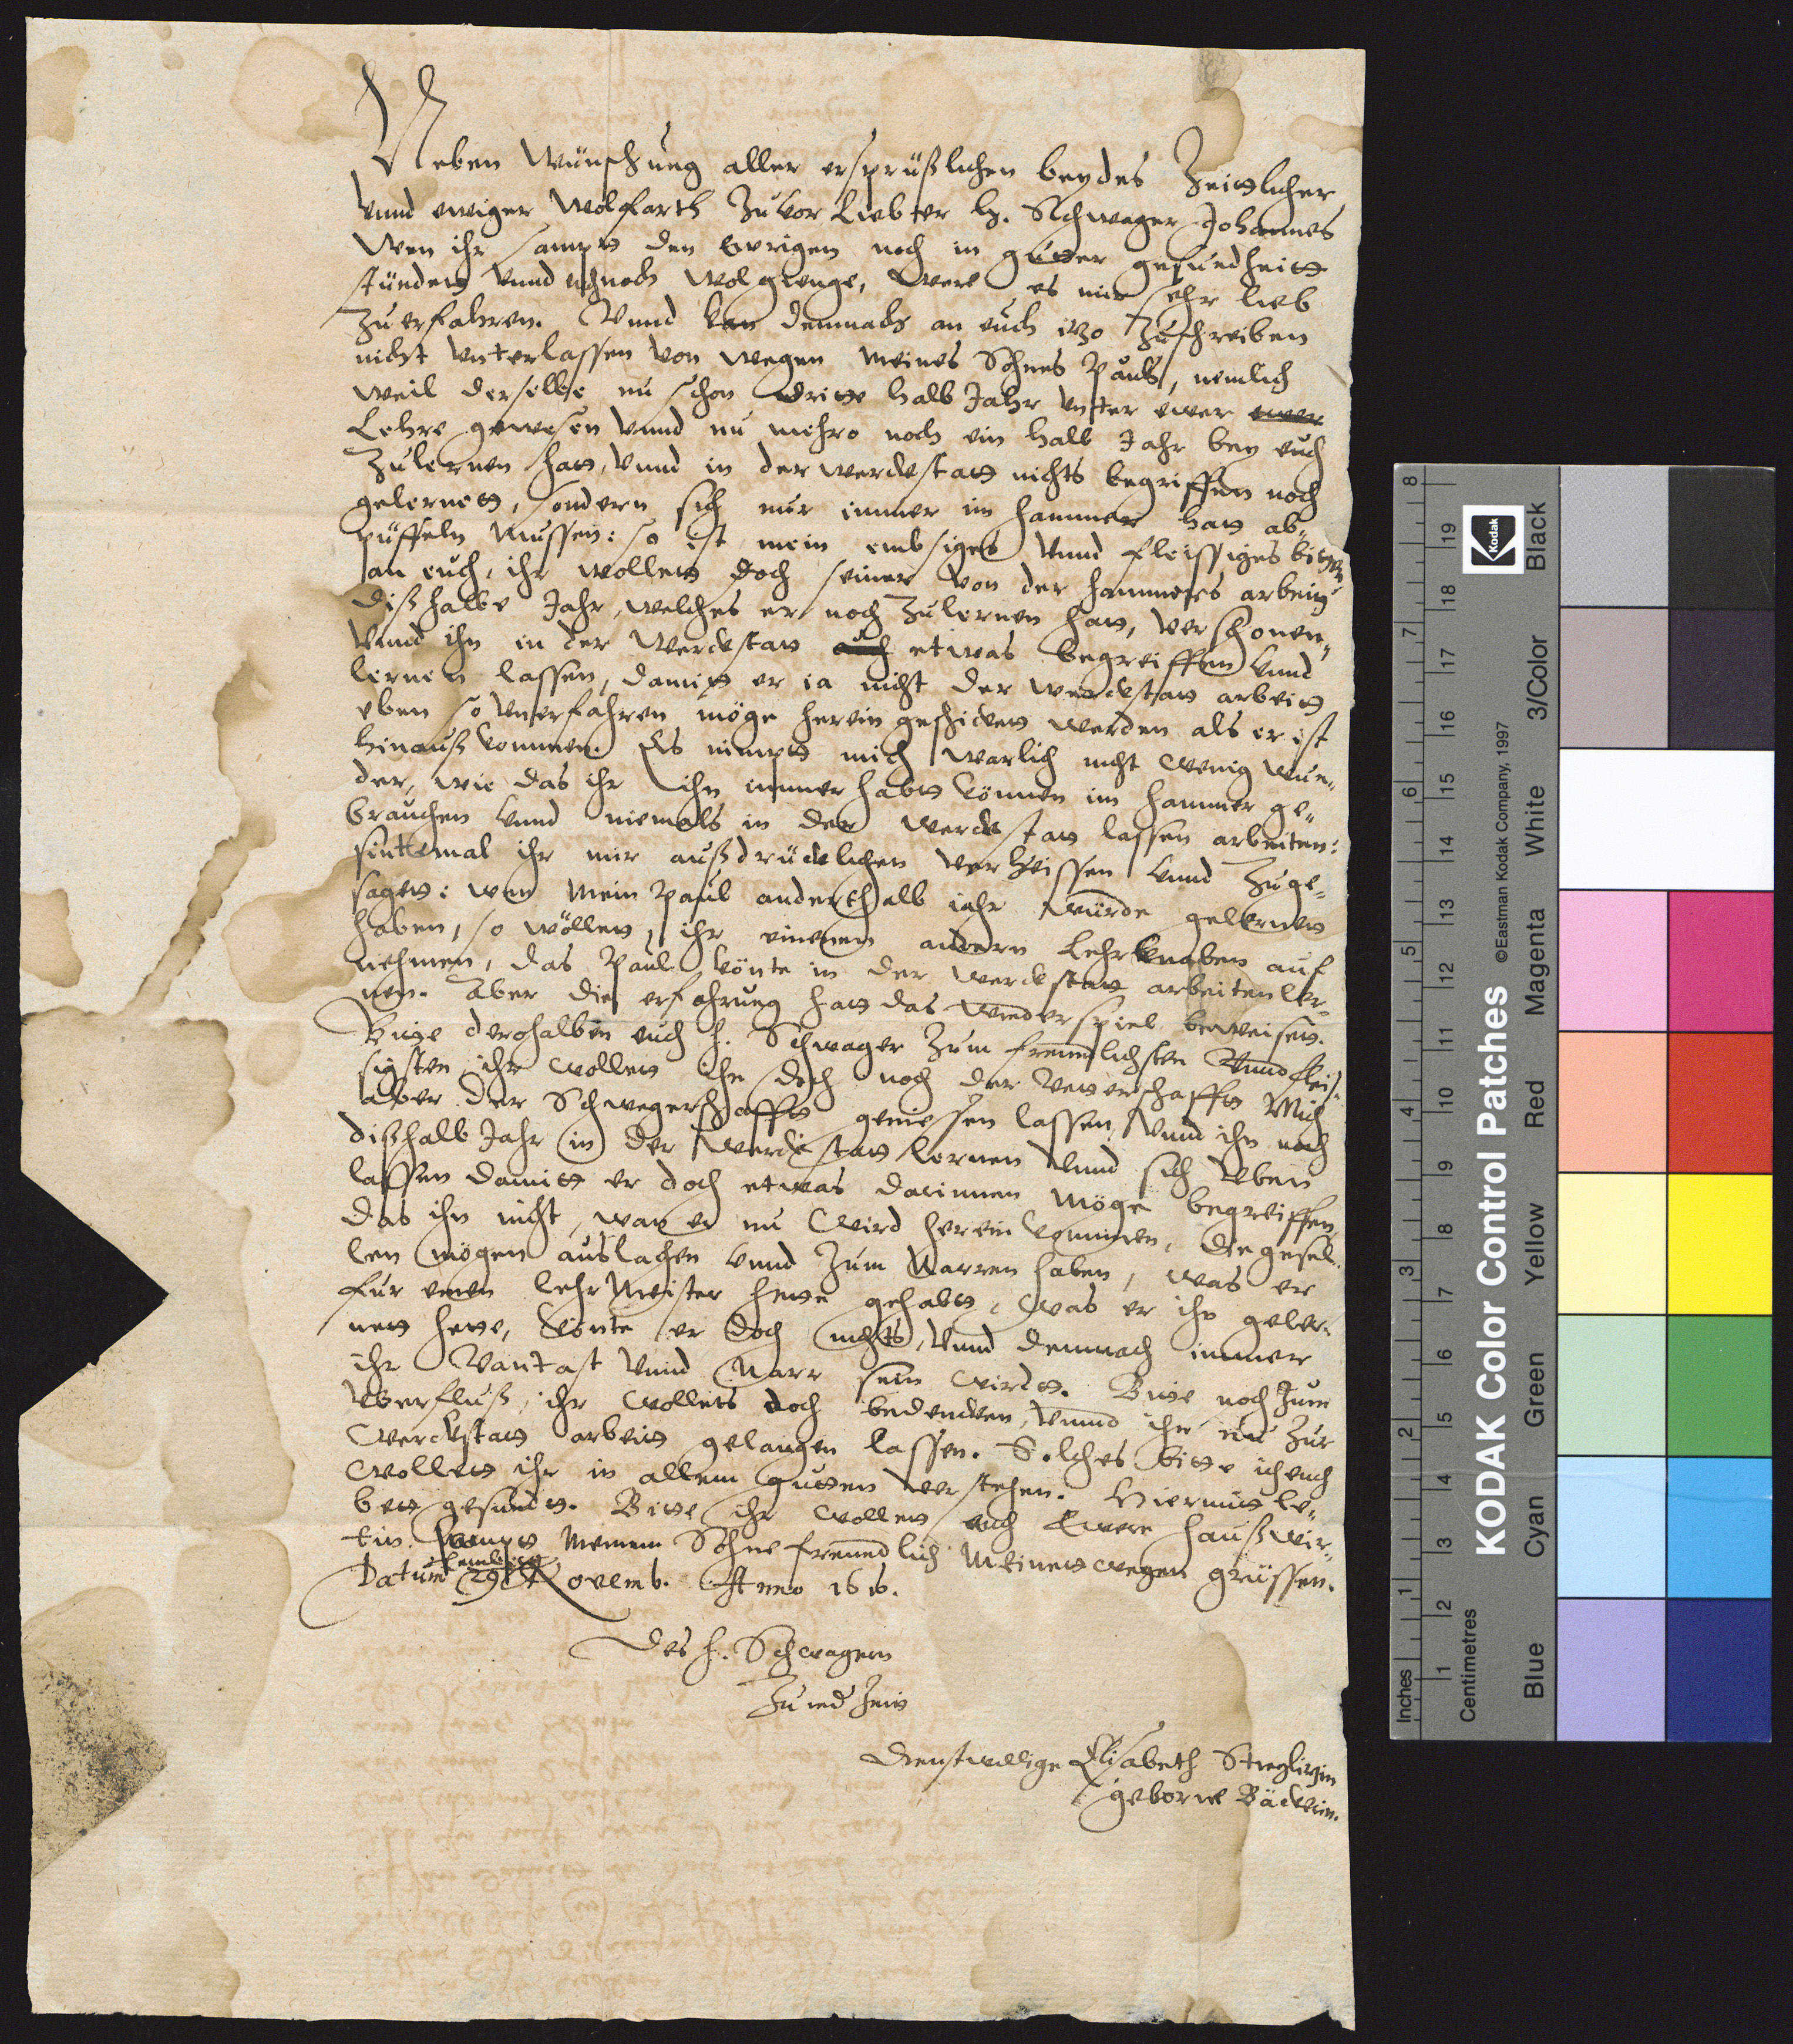 Neben Wünschung aller ersprüßlichen beydes Zeittlicher
vnnd ewiger Wolfarth zuvor Liebter h. Schwager Johannes
Wen ihr sampt den Ewrigen noch in gutter gesundheitt
stündett vnnd euch noch wol gienge, were es mir sehr lieb
zu erfahren. Vnnd kan demnach an euch itzo zuschreiben
nicht vnterlassen von wegen meines Sohnes Pauls, nemlich
weil derselbe nu schon dritte halb Jahr vnter ewer
Lehre gewesen vnnd nu mehro noch ein halb Jahr bey euch
zulernen hatt, vnnd in der werckstatt nichts begriffen noch
gelernett, sondern sich nur immer im hammer hatt ab-
püffeln mussen: so ist mein embsiges vnnd fleissiges bitten
an euch, ihr wollett doch seiner von der hammers arbeitt
diß halbe Jahr, welches er noch zulernen hatt, verschonen,
vnnd ihn in der Werckstatt auch etwas begreiffen vnnd
lernen lassen, damitt er ia nicht der werckstatt arbeitt
eben so vnerfahren möge herein geschickett werden als er ist
hinauß kommen. Es nimptt mich warlich nicht wenig wun-
der, wie das ihr ihn immer habtt können im hammer ge-
brauchen vnnd niemals in der werckstatt lassen arbeiten:
sinttemal ihr mir außdrücklichen verheissen vnnd zuge-
sagett: wen mein Paul anderthalb iahr würde gelernett
haben, so wöllett ihr einenen andern Lehrknaben auf
nehmen, das Paul könte in der werckstatt arbeiten ler-
nen. Aber die erfahrung hatt das wiederspiel beweisett.
Bitte derohalben euch h. Schwager zum freundlichsten vnnd fleis-
sigsten ihr wollett ihn doch noch der Vetterschafftt Mich
aber der Schwegerschafftt geniessen lassen, vnnd ihn noch
diß halb Jahr in der Werckstatt lernen vnnd sich vben
lassen damitt er doch etwas darinnen möge begreiffen,
das ihn nicht, wan er nu wird herein kommen, die gesel-
len mögen auslachen vnnd zum Narren haben, was er
für einen lehr Meister hette gehabtt, was er ihn geler-
nett hette, könte er doch nichts, vnnd demnach immer
ihr Vantast vnnd Narr sein wirdtt. Bitte noch zum
vberfluß, ihr wolletts doch bedencken, vnnd ihn nu zur
Werckstatt arbeitt gelangen lassen. Solches bitte ich euch
wollett ihr in allem gutten verstehen. Hiermitt le-
bett gesundtt. Bitte ihr wollett auch Ewere haußwir-
tin sampt meinem Sohne freundlich Meinettwegen grüssen.
Datum 29 Novemb. Anno 1616.
Des h. Schwagern
Zu ied Zeitt
Dienstwillige Elisabeth Stieglitzin
geborne Bäckerin.
KODAK Color Control Patches
©Eastman Kodak Company, 1997
Kodak
Inches 1 2 3 4 5 6 7 8
Centimetres 1 2 3 4 5 6 7 8 9 10 11 12 13 14 15 16 17 18 19
Blue Cyan Green Yellow Red Magenta White 3/Color Black